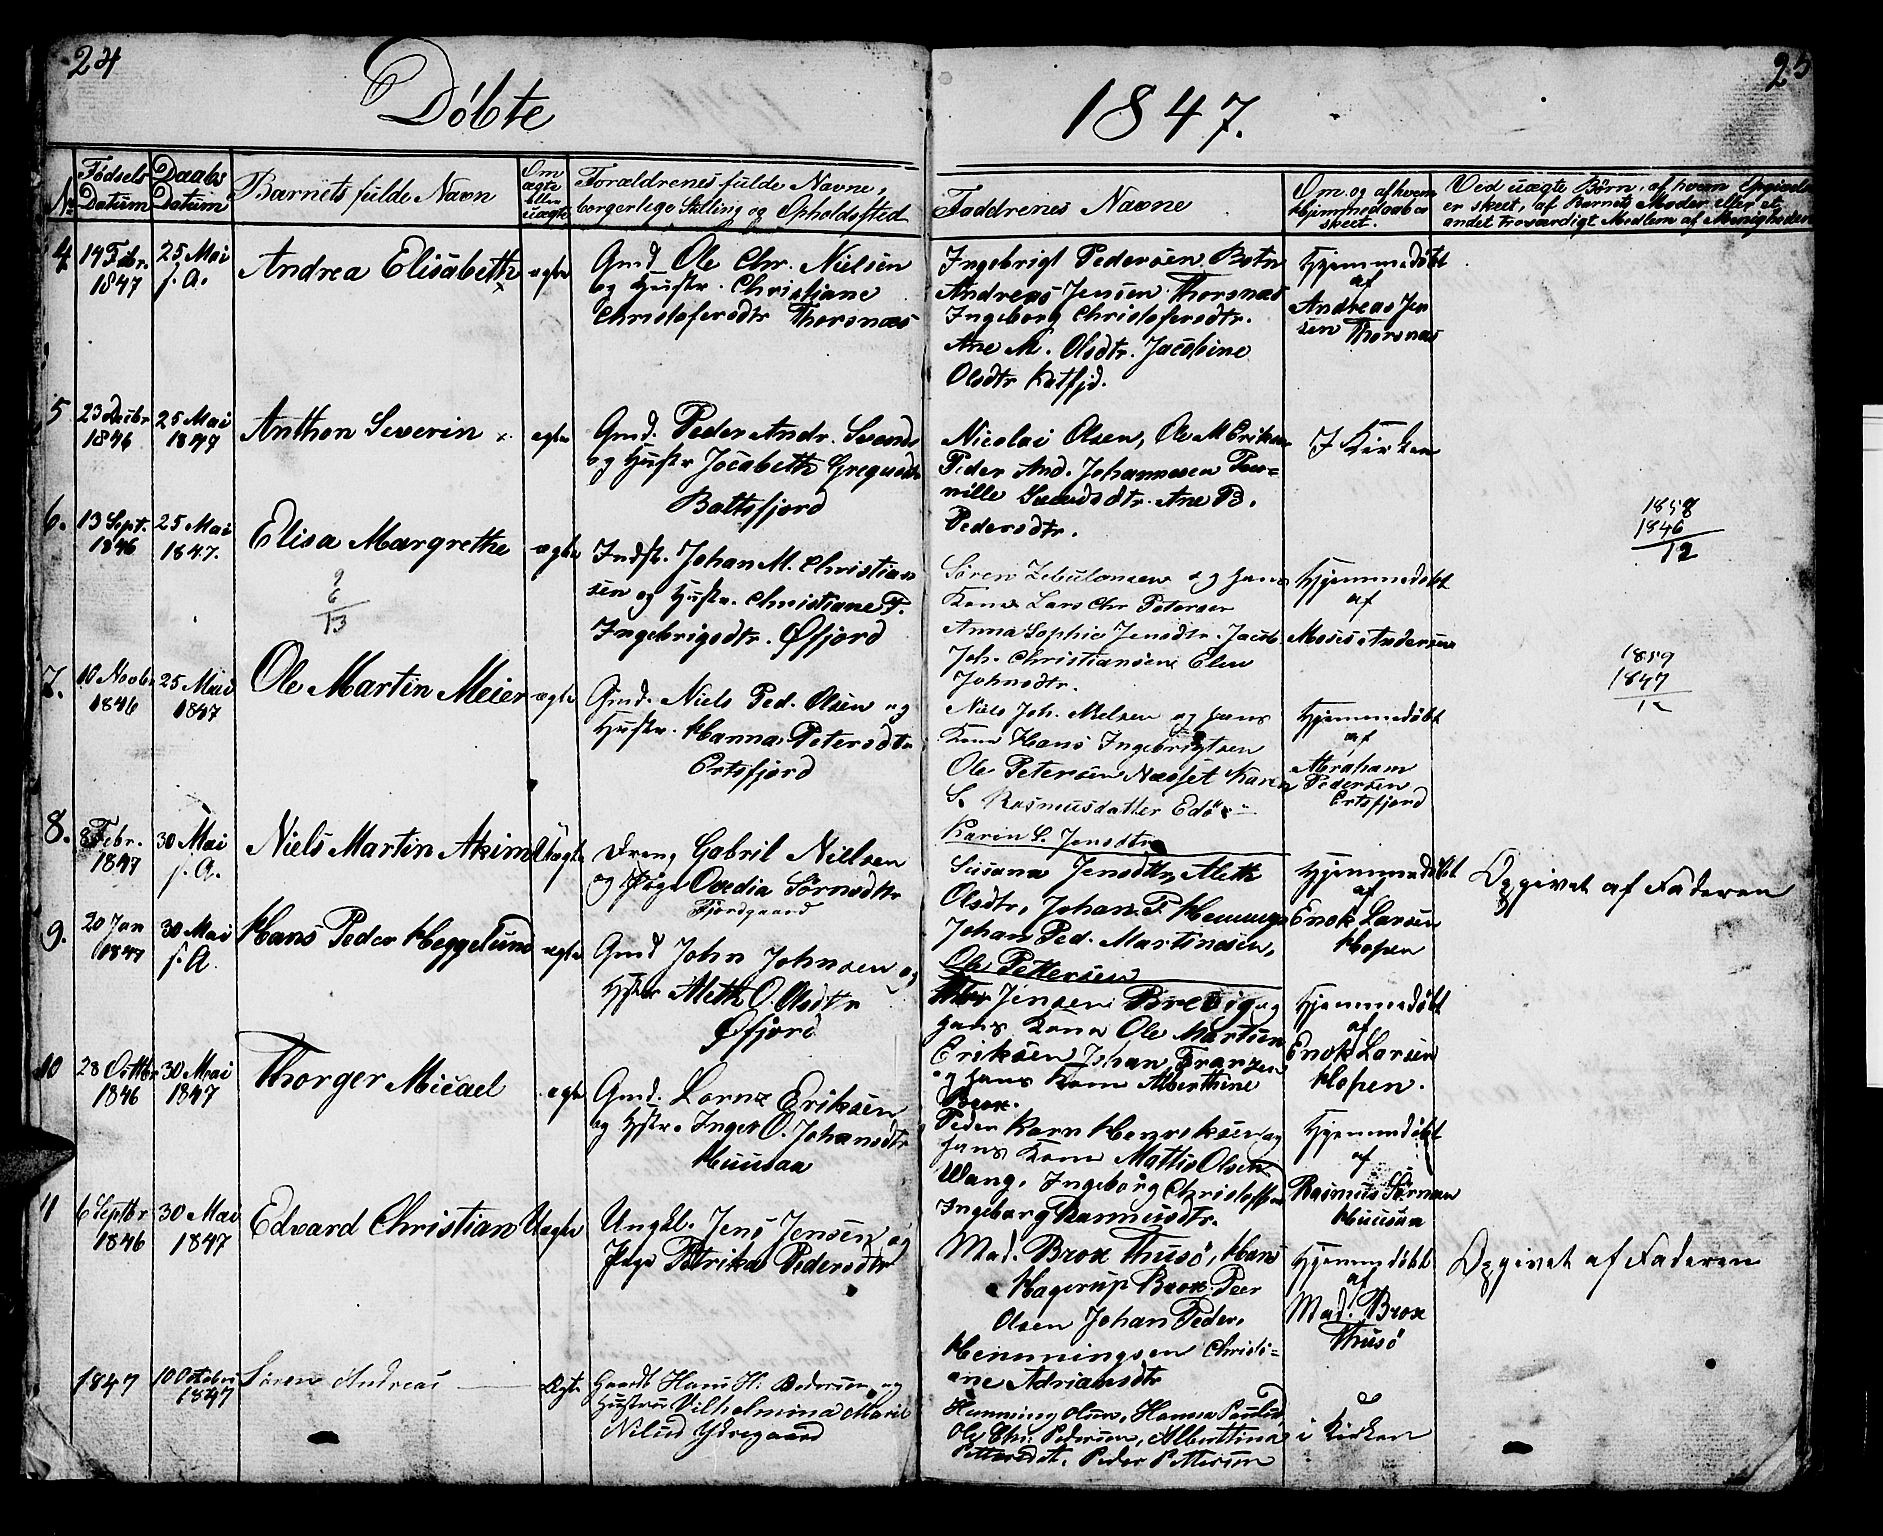 24
Döbte
1847.
25
No
Fødsels Datum
Daabs Datum
Barnets fulde Navn
Om ægte eller uægte
Forældrenes fulde Navne,
borgerlege Stilling og Opholdssted
Faddrenes Navne
Om og af hvem Hjemmedaab er skeet.
Ved uægte Børn, af hvem Opgivelse
er skeet, af Barnets Moder eller et
andet troværdigt Medlem af Menigheden
4
14 Febr.
1847
25 Mai
s. A.
Andrea Elisabeth
ægte
Gmd. Ole Chr. Nielsen
og Hustr. Christiane
Christofersdtr Thorsnæs
Ingebrigt Pedersen Botn
Andreas Jensen Thorsnæs
Ingeborg Christofersdtr.
Ane M. Olsdtr. Jacobine
Olsdtr Katfjd.
Hjemmedöbt
af
Andreas Jen
sen Thorsnæs
5
23 Decbr
1846
25 Mai
1847
Anthon Severin
ægte
Gmd. Peder Andr. Svends
og Hustr Jocabeth
Baltsfjord
Nicolai Olsen, Ole M Eriksen
Peder And. Johannesen
Ane B.
Pedersdtr.
I Kirken
6.
13 Sept.
1846
25 Mai
1847.
Elisa Margrethe
9
6
13
ægte
Indst. Johan M. Christian
sen og Hustr. Christiane F.
Ingebrigsdtr. Øfjord
Søren Zebulonsen og hans
Kone Lars Chr Petersen
Anna Sophie Jensdtr. Jacob
Joh. Christiansen Elen
Johnsdtr.
Hjemmedöbt
af
Moses Andersen
1858
1846
12
7.
10 Novbr
1846
25 Mai
1847
Ole Martin Meier
ægte
Gmd. Niels Ped. Olsen og
Hustr. Hanna Petersdtr
Ertsfjord
Niels Joh. Nielsen og hans
Kone Hans Ingebrigtsen
Ole Petersen Næsset Karen
S. Rasmusdatter Edö
Karen S. Jensdtr
Hjemmedöbt
af
Abraham
Pedersen
Ertsfjord
1859
1847
12
8.
8 Febr.
1847
30 Mai
s. A.
Niels Martin Akim
Uægte
Dreng Gabril Nielsen
og Pige Ovedia Sörnsdtr
Fjordgaard
Susana Jensdtr, Meth
Olsdtr, Johan P. Hemming
Johan Ped. Martinesen,
Ole Pettersen
Hjemmedöbt
af
Enok Larsen
Hopen
Opgivet af Faderen
9.
20 Jan
1847
30 Mai
s. A.
Hans Peder Heggelund
ægte
Gmd John Johnsen og
Hstr Meth O. Olsdtr
Øfjord
Jensen Brevig og
hans Kone Ole Martin
Eriksen Johan Franzen
og hans Kone Alberthine
Brox.
Hjemmedöbt
af
Enok Larsen
Hopen.
10
28 Octbr
1846
30 Mai
1847
Thorger Micael
ægte
Gmd. Lornz Eriksen
og Hstr. Inger O. Johansdtr
Huusaa
Peder Karn Henriksen og
hans Kone Mattis Olsen
Wang, Ingeborg Christoffer
Ingeborg Rasmusdtr.
Hjemmedöbt
af
Rasmus Sörnsen
Huusaa
11
6 Septbr
1846
30 Mai
1847
Edvard Christian
Uægte
Ungkl. Jens Jensen og
Pige Petrika Pedersdtr
Mad. Brox Thusö, Hans
Hagerup Brox, Peer
Olsen Johan Peder,
Henningsen Christi-
ane Adriansdtr
Hjemmedöbt
af
Mad. Brox
Thusö
Opgivet af Faderen
1847
10 October
1847
Søren Andreas
Ægte
Gaardb Hans H. Pedersen og
Hustrue Vilhelmina Marie
Nilsd Ydregaard
Henning Olsen, Hansa Paulsd,
Ole Chr: Pedersen, Alberttina
Pettersdt. Peder Pettersen
i Kirken